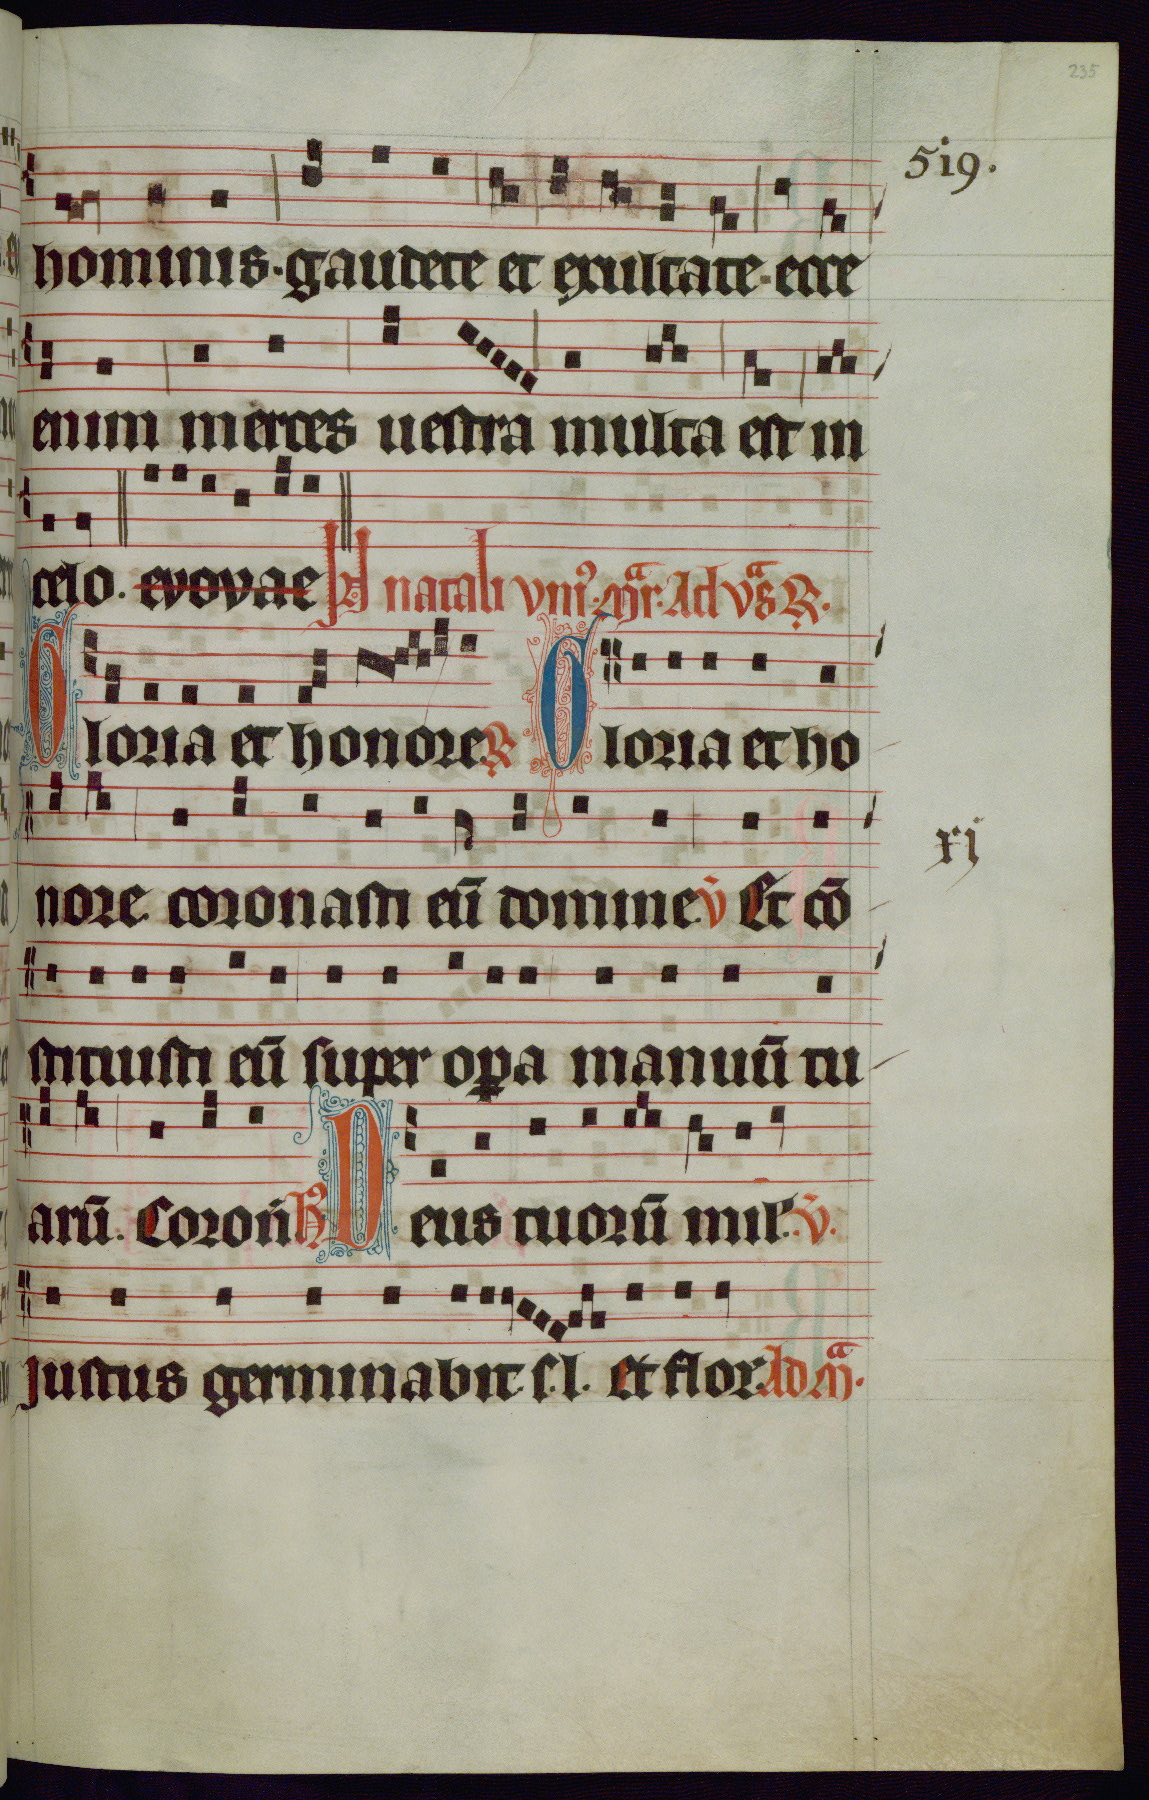 235
519.
hominis. gaudete et exultate. ecce
enim merces uestra multa est in
celo. evovae In natali vni9. mr̃. Ad vãs R.
Gloria et honore. R Gloria et ho
nore coronasti eū domine. v̄ Et cō
xj
stituisti eū super oꝑa manuū tu
arū. Coron̄ H Deus tuorū mil. v̄.
Justus germinabit. s. l. Et flor. Ad m̄ª.